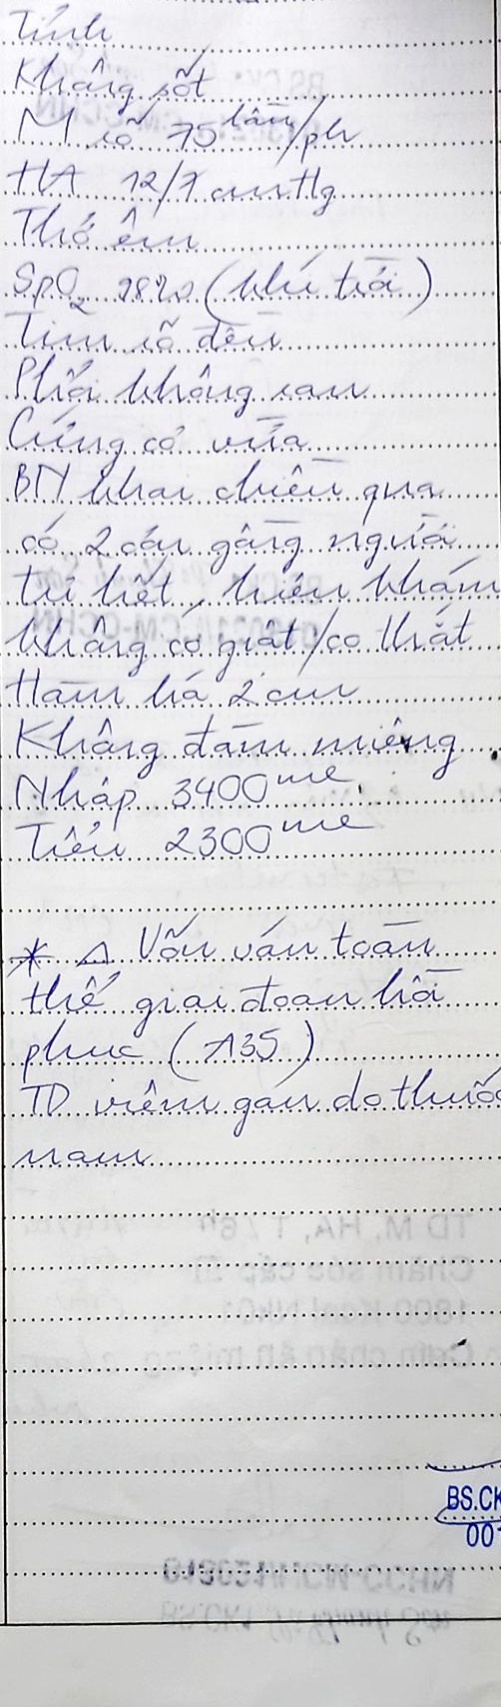 Tỉnh
Không sốt
M rõ 75 lần/ph
HA 12/7 cmHg
Thở êm
SpO2 98% (khí trời)
Tim rõ đều
Phổi không ran
Cứng cơ vừa
BN khai chiều qua
có 2 cơn gồng người
tự hết, hiện khám
không co giật/co thắt
Hàm há 2 cm
Không đàm miệng
Nhập 3400 ml
Tiểu 2300 ml
* Δ Uốn ván toàn
thể giai đoạn hồi
phục (A35)
TD viêm gan do thuốc
nam
TD M, HA, T°/6h
Chăm sóc cấp II
1800 Kcal
Cơm chăn ăn miệng
BS.CK
00